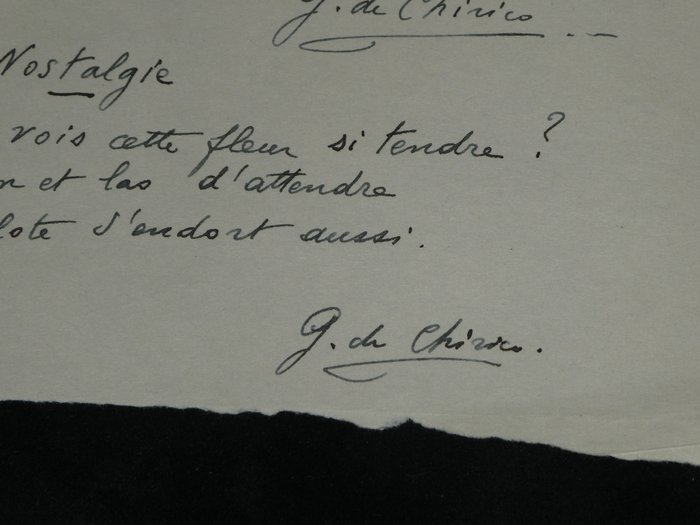 G. de Chirico
Nostalgie
vois cette fleur si tendre ?
n et las d'attendre
lote s'endort aussi.
G. de Chirico.